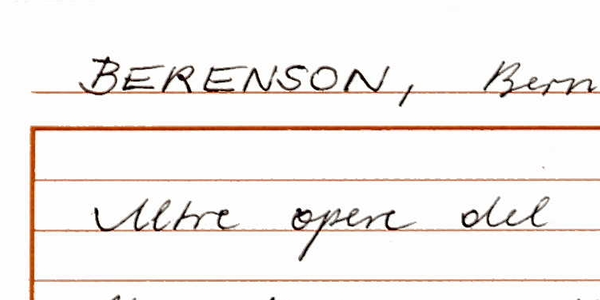 BERENSON, Bern
Altre opere del